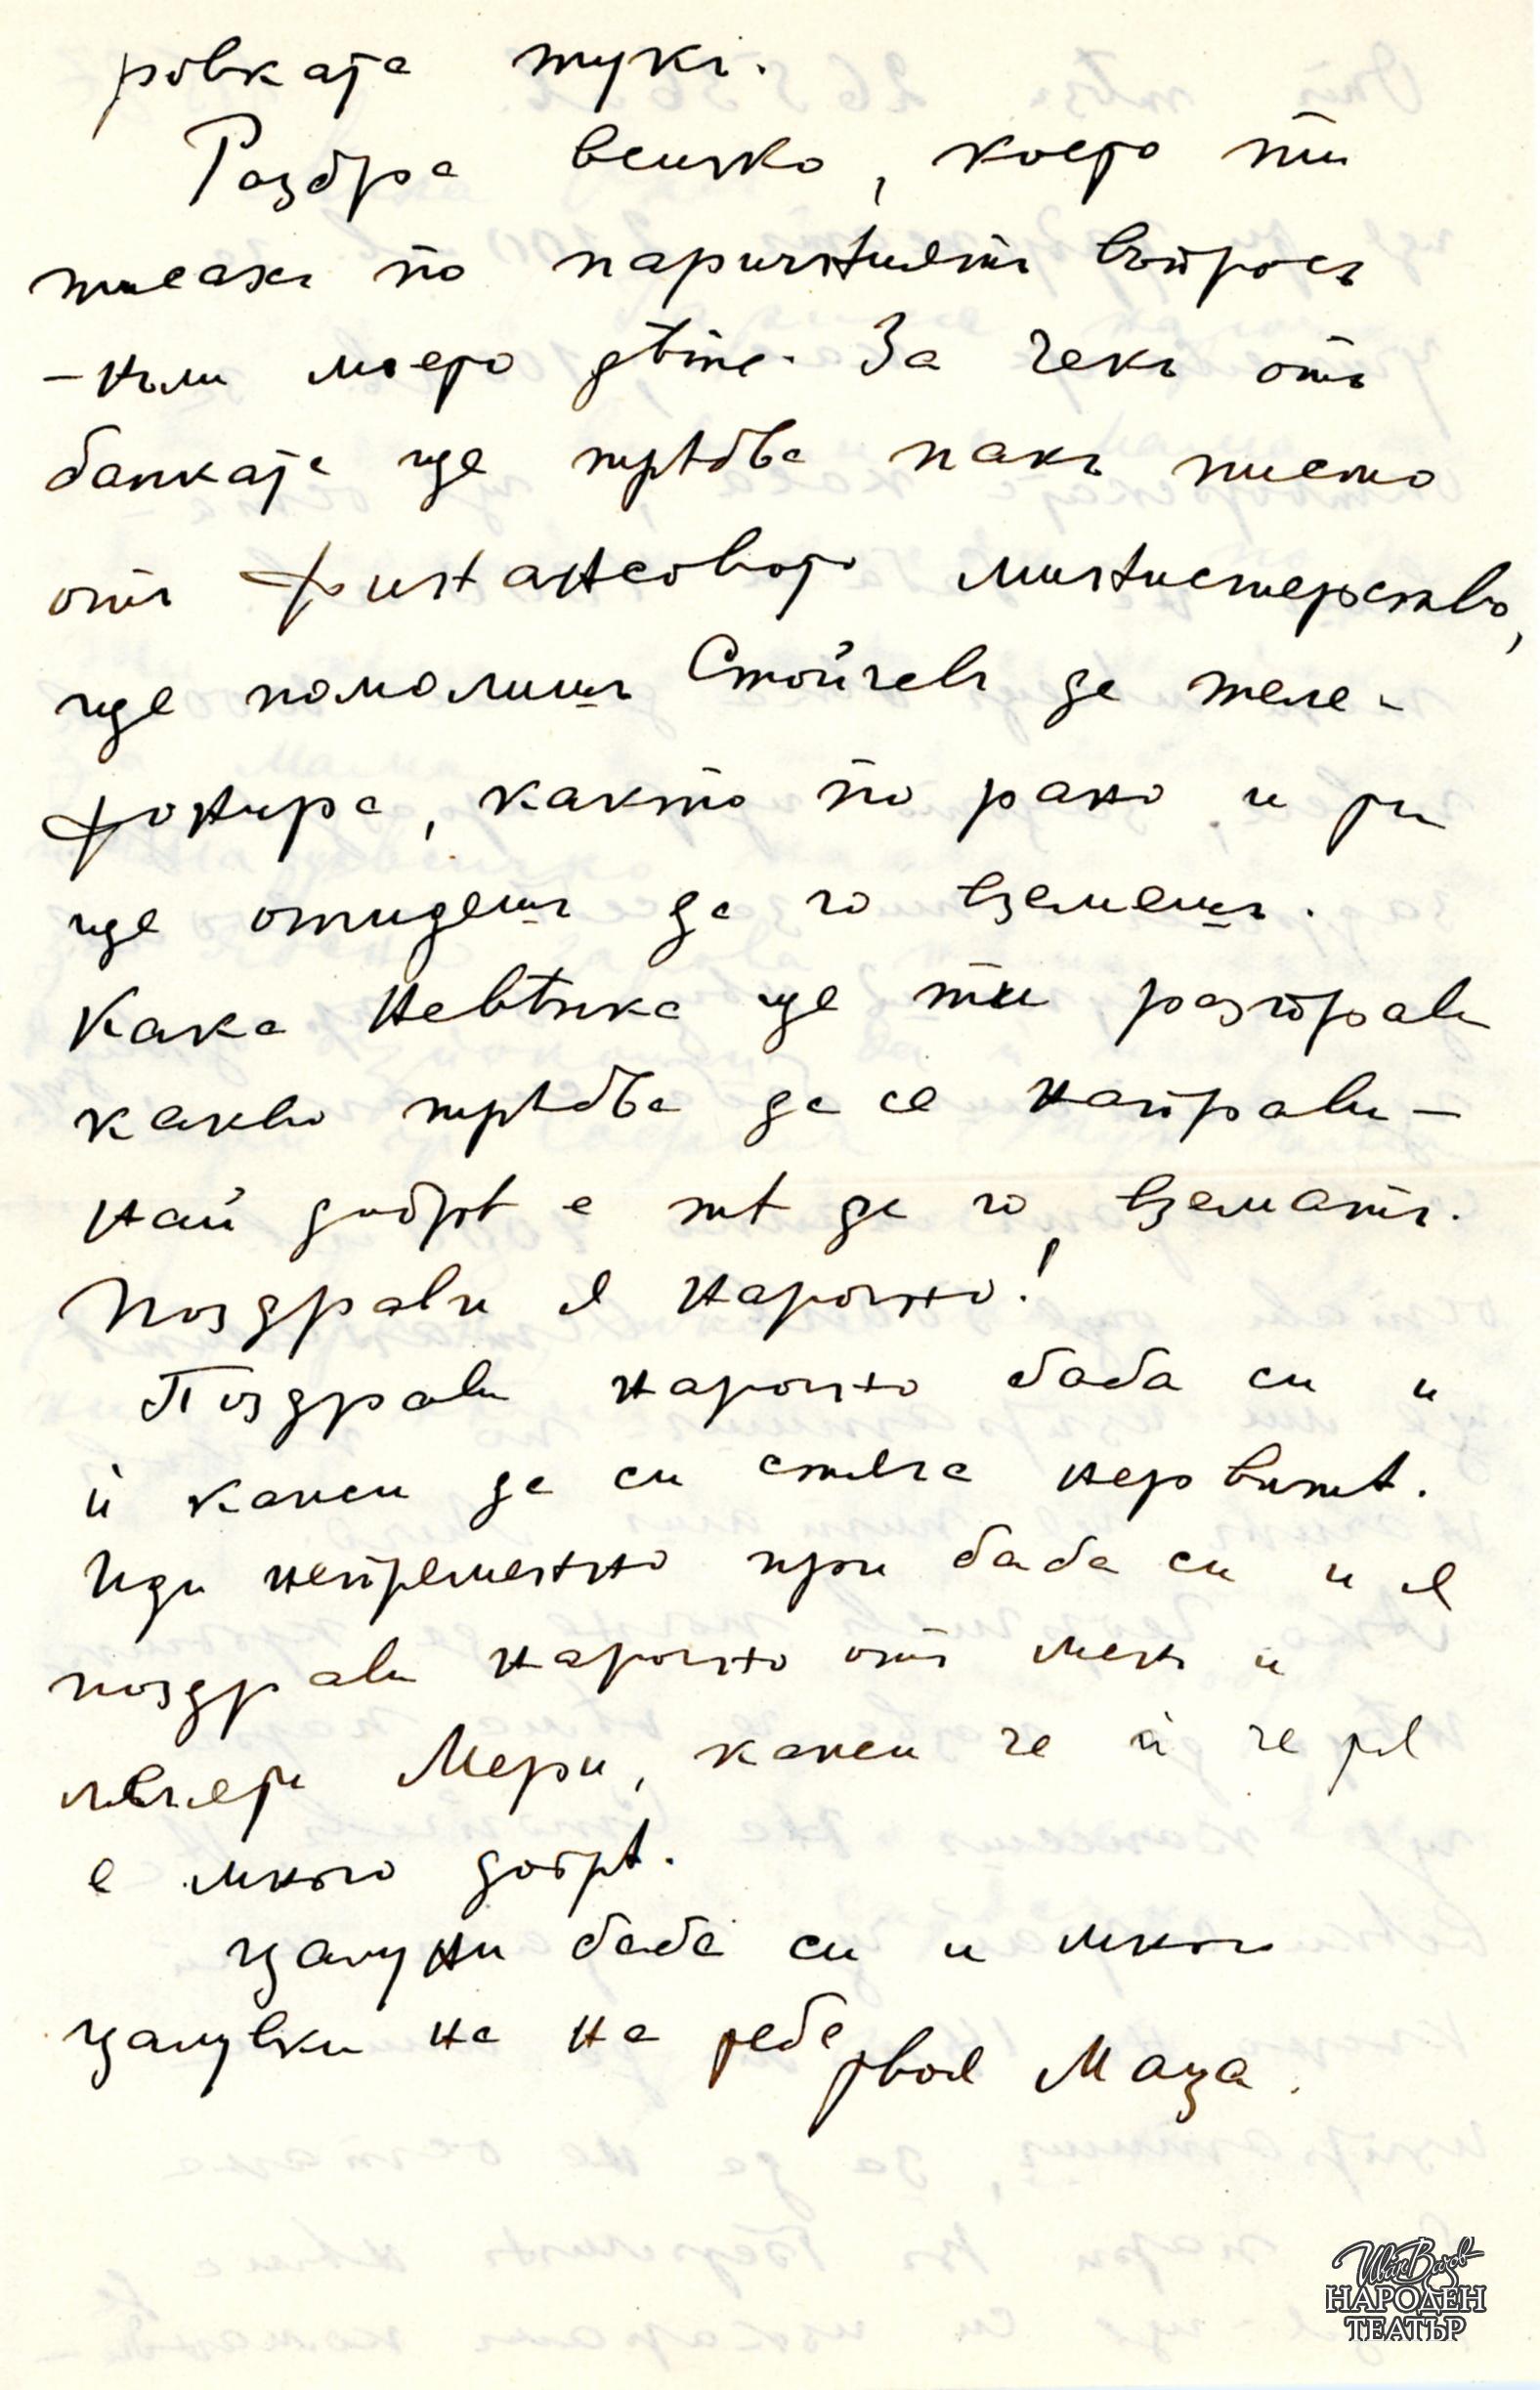 ровката тукъ.
Разбра всичко, което ти
писахъ по паричниятъ въпросъ
– нали моето дѣте. За чекъ отъ
банката ще трѣбва пакъ писмо
отъ финансовото министерство,
ще помолишъ Стойчевъ да теле-
фонира, както по рано и ти
ще отидешъ да го вземешъ.
Кака Невѣнка ще ти разправи
какво трѣбва да се направи –
най добрѣ е тѣ да го взематъ.
Поздрави я нарочно!
Поздрави нарочно баба си и
ѝ кажи да си стяга нервитѣ.
Иди непременно при баба си и я
поздрави нарочно отъ мен и
Мери, кажи че ѝ че тя
е много добрѣ.
Цалуни баба си и много
цалувки на на тебе твоя Маца.
Иван Вазов
НАРОДЕН
ТЕАТЪР